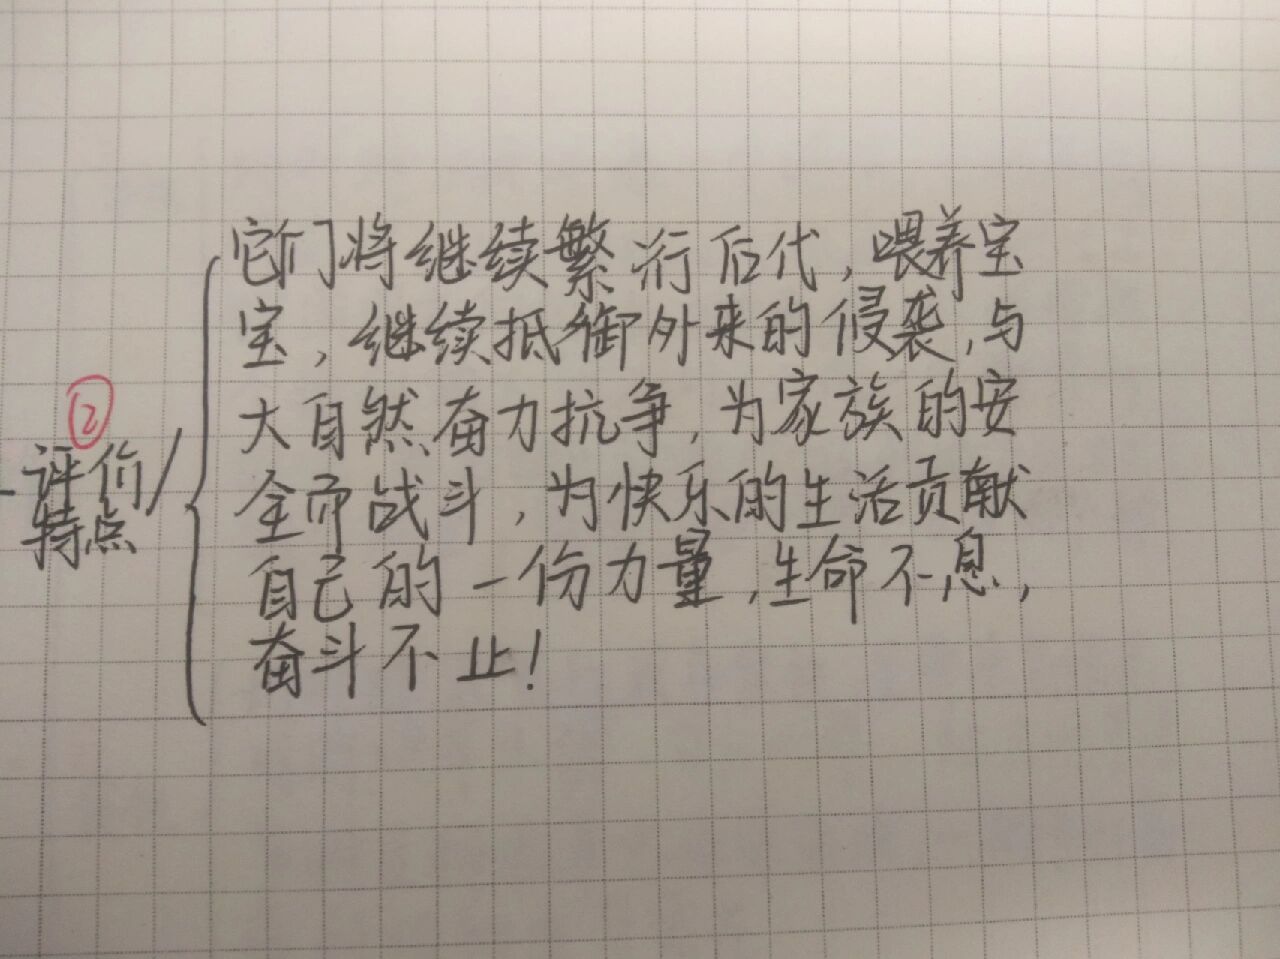 ②
评价/
特点
它们将继续繁衍后代，喂养宝
宝，继续抵御外来的侵袭，与
大自然奋力抗争，为家族的安
全而战斗，为快乐的生活贡献
自己的一份力量，生命不息，
奋斗不止！